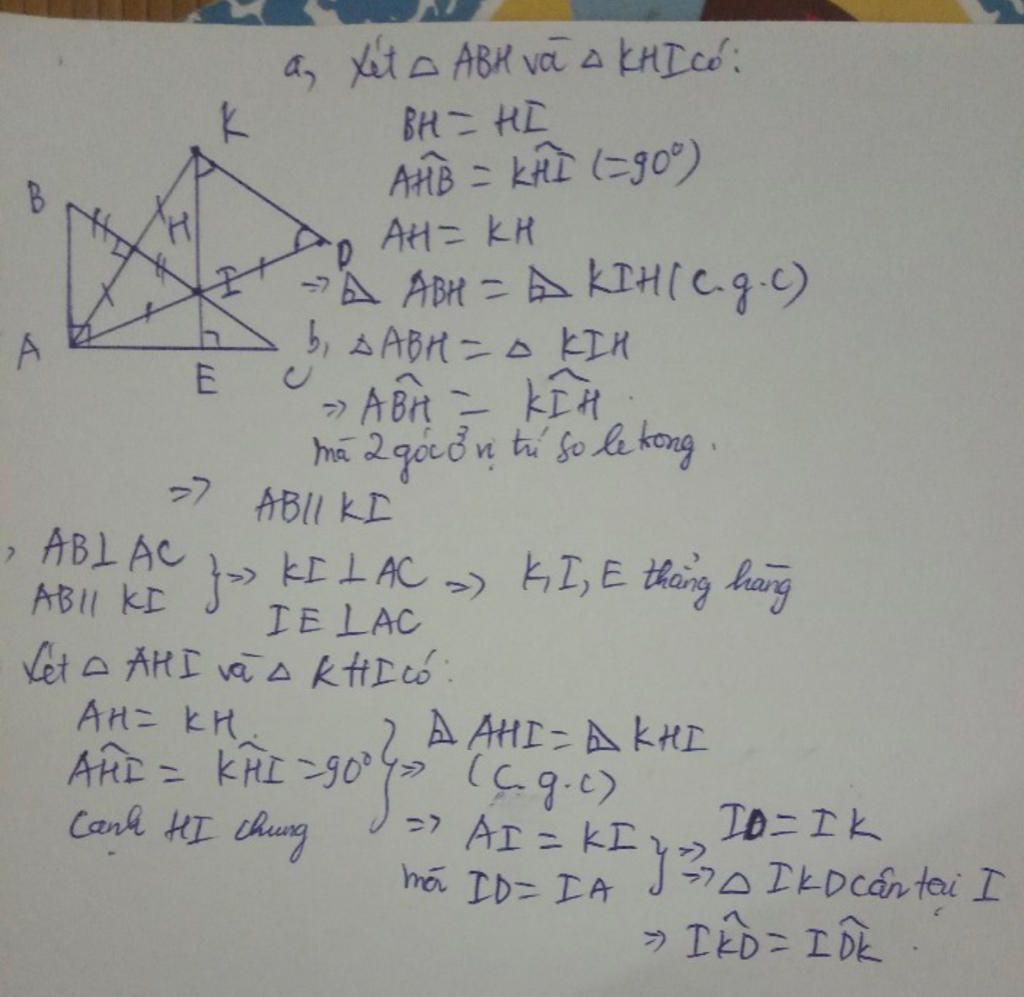 a, Xét △ ABH và △ KHI có:
BH = HI
AĤB = KĤI (=90°)
AH = KH
=> △ ABH = △ KIH (c.g.c)
b, △ ABH = △ KIH
=> AB̂H = KÎH
mà 2 góc ở vị trí so le trong.
=> AB // KI
, AB ⊥ AC
AB // KI
} => KI ⊥ AC => K, I, E thẳng hàng
IE ⊥ AC
Xét △ AHI và △ KHI có:
AH = KH
AĤI = KĤI = 90°
Cạnh HI chung
} => △ AHI = △ KHI
(c.g.c)
=> AI = KI
mà ID = IA
} => ID = IK
=> △ IKD cân tại I
=> IK̂D = ID̂K
K
B
H
D
I
A
E
C